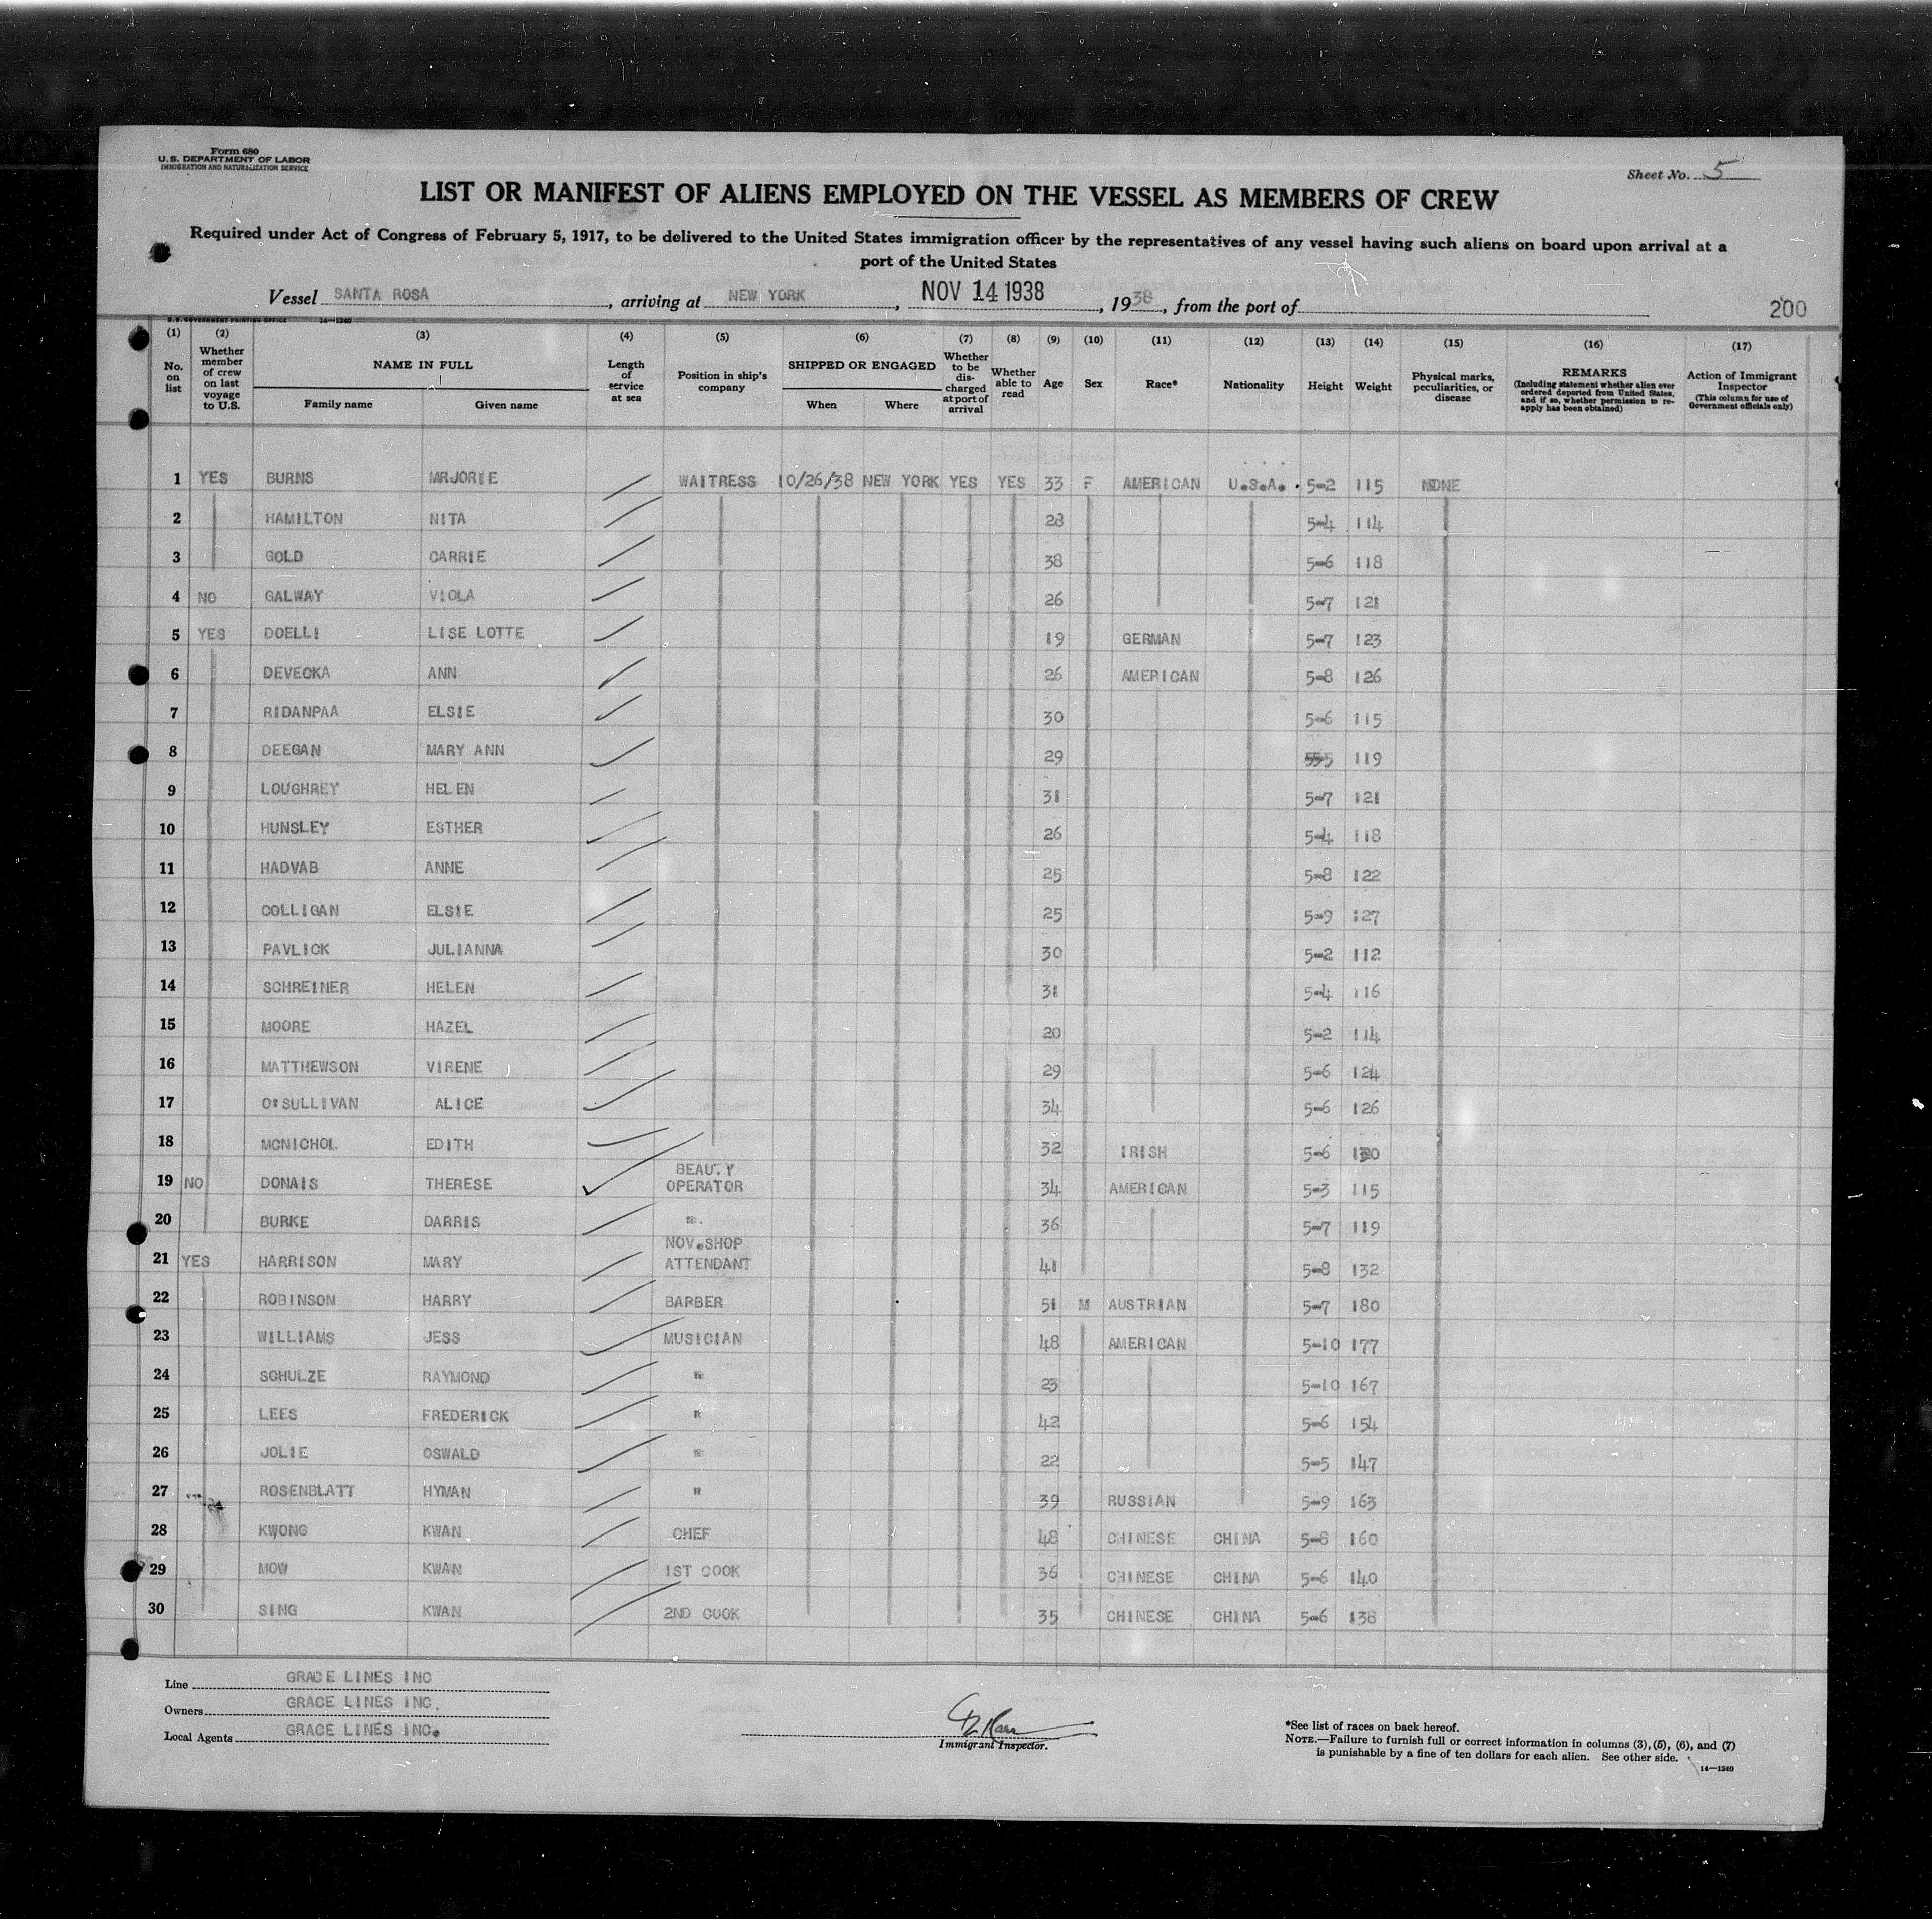 Form 680
U. S. DEPARTMENT OF LABOR
IMMIGRATION AND NATURALIZATION SERVICE
Sheet No. 5
LIST OR MANIFEST OF ALIENS EMPLOYED ON THE VESSEL AS MEMBERS OF CREW
Required under Act of Congress of February 5, 1917, to be delivered to the United States immigration officer by the representatives of any vessel having such aliens on board upon arrival at a
port of the United States
Vessel SANTA ROSA, arriving at NEW YORK, NOV 14 1938, 1938, from the port of
200
U. S. GOVERNMENT PRINTING OFFICE 14—1240
(1) (2) (3) (4) (5) (6) (7) (8) (9) (10) (11) (12) (13) (14) (15) (16) (17)
No. on list
Whether member of crew on last voyage to U.S.
NAME IN FULL
Family name Given name
Length of service at sea
Position in ship's company
SHIPPED OR ENGAGED
When Where
Whether to be discharged at port of arrival
Whether able to read
Age
Sex
Race*
Nationality
Height
Weight
Physical marks, peculiarities, or disease
REMARKS
(Including statement whether alien ever ordered deported from United States, and if so, whether permission to re-apply has been obtained)
Action of Immigrant Inspector
(This column for use of Government officials only)
1 YES BURNS MRJORIE WAITRESS 10/26/38 NEW YORK YES YES 33 F AMERICAN U.S.A. 5-2 115 NONE
2 HAMILTON NITA 28 5-4 114
3 GOLD CARRIE 38 5-6 118
4 NO GALWAY VIOLA 26 5-7 121
5 YES DOELLI LISE LOTTE 19 GERMAN 5-7 123
6 DEVECKA ANN 26 AMERICAN 5-8 126
7 RIDANPAA ELSIE 30 5-6 115
8 DEEGAN MARY ANN 29 119
9 LOUGHREY HELEN 31 5-7 121
10 HUNSLEY ESTHER 26 5-4 118
11 HADVAB ANNE 25 5-8 122
12 COLLIGAN ELSIE 25 5-9 127
13 PAVLICK JULIANNA 30 5-2 112
14 SCHREINER HELEN 31 5-4 116
15 MOORE HAZEL 20 5-2 114
16 MATTHEWSON VIRENE 29 5-6 124
17 O'SULLIVAN ALICE 34 5-6 126
18 MCNICHOL EDITH 32 IRISH 5-6
19 NO DONAIS THERESE BEAUTY OPERATOR 34 AMERICAN 5-3 115
20 BURKE DARRIS " 36 5-7 119
21 YES HARRISON MARY NOV.SHOP ATTENDANT 41 5-8 132
22 ROBINSON HARRY BARBER 51 M AUSTRIAN 5-7 180
23 WILLIAMS JESS MUSICIAN 48 AMERICAN 5-10 177
24 SCHULZE RAYMOND " 23 5-10 167
25 LEES FREDERICK " 42 5-6 154
26 JOLIE OSWALD " 22 5-5 147
27 ROSENBLATT HYMAN " 39 RUSSIAN 5-9 163
28 KWONG KWAN CHEF 48 CHINESE CHINA 5-8 160
29 MOW KWAN 1ST COOK 36 CHINESE CHINA 5-6 140
30 SING KWAN 2ND COOK 35 CHINESE CHINA 5-6 138
Line GRACE LINES INC
Owners GRACE LINES INC.
Local Agents GRACE LINES INC.
Immigrant Inspector.
*See list of races on back hereof.
NOTE.—Failure to furnish full or correct information in columns (3), (5), (6), and (7)
is punishable by a fine of ten dollars for each alien. See other side.
14—1240